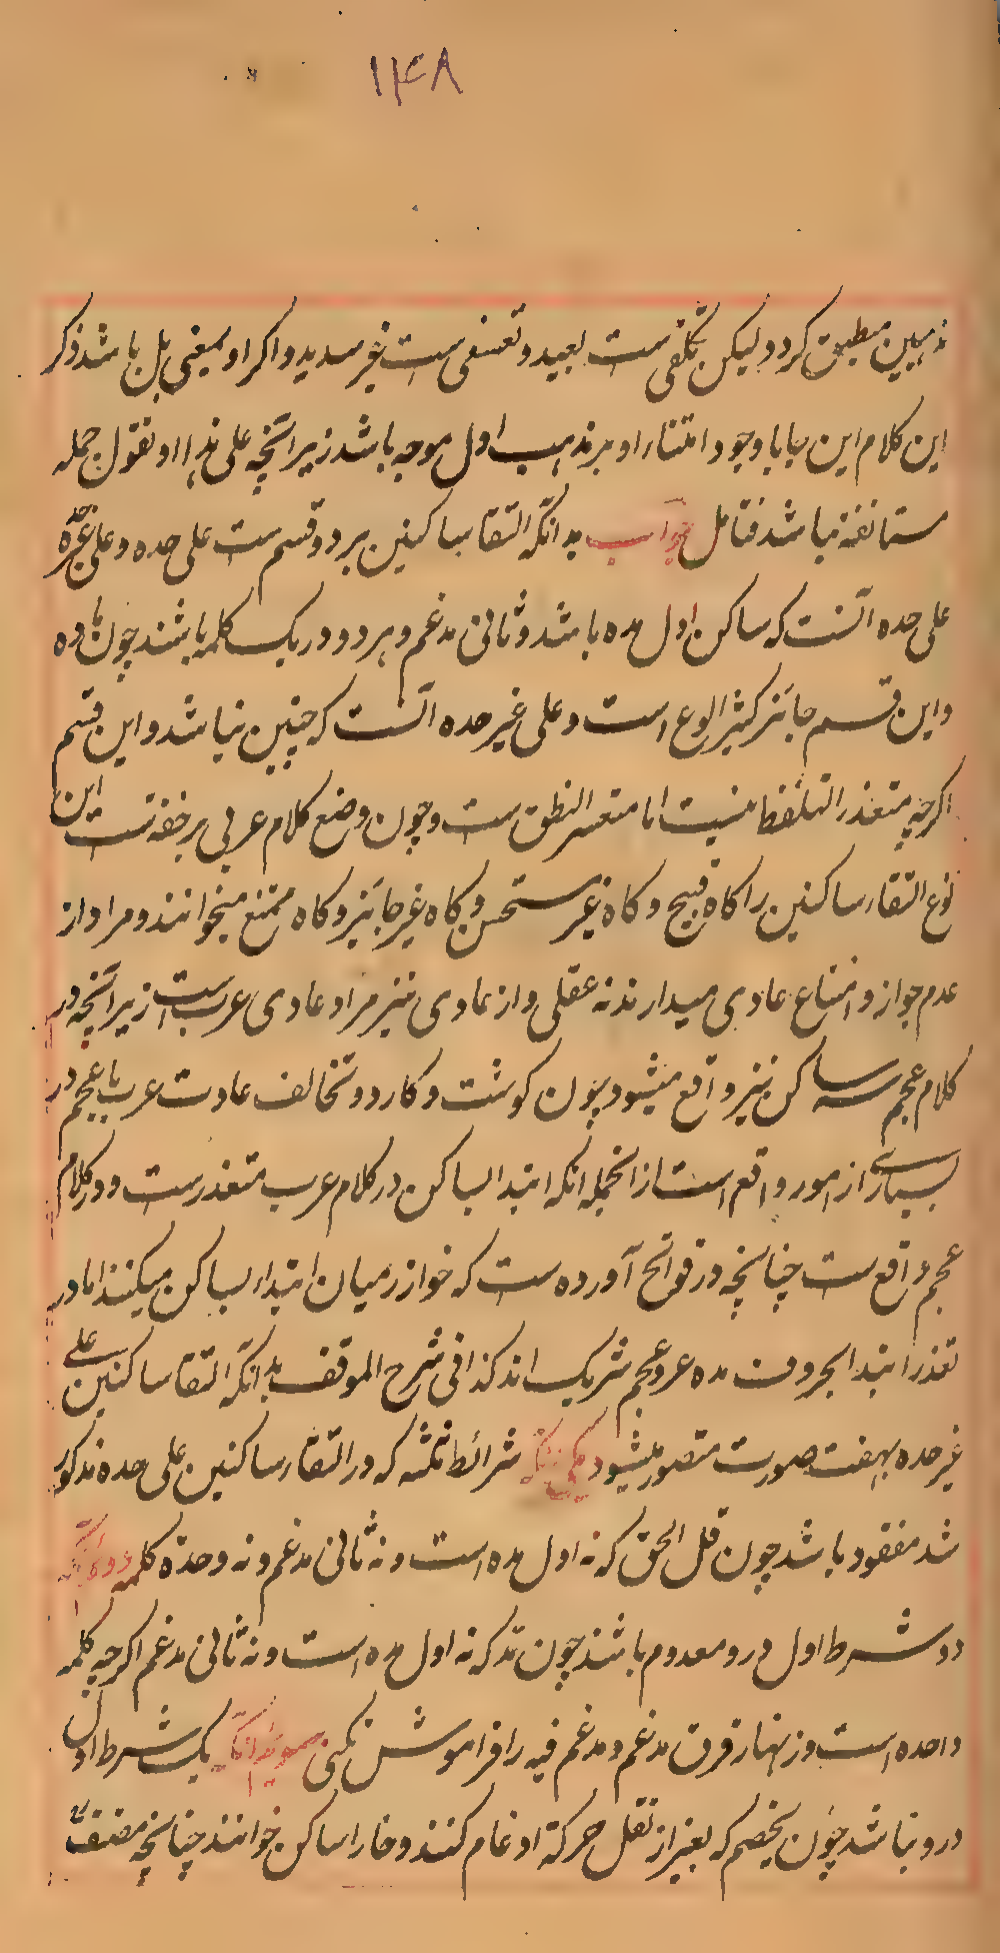 ۱۴۸
مذهبین مطبق کردد و لیکن تکلفی ست بعید و تعسفی ست غیر سدید و اکر او بمعنی بل باشد ذکر
این کلام این بیا با وجود امتنار او بر مذهب اول موجه باشد زیرانچه علی هذا او نقول جمله
مستانفه نباشد فتامل جواب بدانکه التقا ساکنین بر دو قسم ست علی حده و علی غیر حده
علی حده آنست که ساکن اول مده باشد و ثانی مدغم و هر دو در یک کلمه باشند چون ماده
و این قسم جائز کثیر الوقوع است و علی غیر حده آنست که چنین نباشد و این قسم
اکرچه متعذر التلفظ نیست اما متعسر النطق ست و چون وضع کلام عربی بر خفت ست این
نوع التقاء ساکنین را کاه قبیح و کاه غیر مستحسن و کاه غیر جائز و کاه ممتنع میخوانند و مراد از
عدم جواز و امتناع عادی میدارند نه عقلی و از عادی نیز مراد عادی عرب ست زیرانچه در
کلام عجم سه ساکن نیز واقع میشود چون کوشت و کارد و تخالف عادت عرب با عجم در
بسیاری از امور واقع است از انجمله انکه ابتدا بساکن در کلام عرب متعذرست و در کلام
عجم واقع ست چنانچه در فواتح آورده ست که خوازرمیان ابتداء بساکن میکنند اما در
تعذر ابتدا بحروف مده عرب و عجم شریک اند کذا فی شرح المواقف بدانکه التقا ساکنین علی
غیر حده بهفت صورت متصور میشود یکی انکه شرائط ثلثه که در التقاء ساکنین علی حده مذکور
شد مفقود باشد چون قل الحق که نه اول مده است و نه ثانی مدغم و نه وحدة کلمه دوم آنکه
دو شرط اول درو معدوم باشند چون تدکه نه اول مده است و نه ثانی مدغم اکرچه کلمه
واحده است و زنهار فرق مدغم و مدغم فیه را فراموش نکنی سوم آنکه یک شرط اول
درو نباشد چون یخصم که بغیر از نقل حرکة ادغام کنند و خا را ساکن خوانند چنانچه مصنف